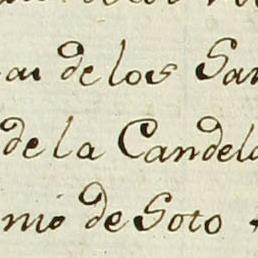 de los San
de la Candela
nio de Soto